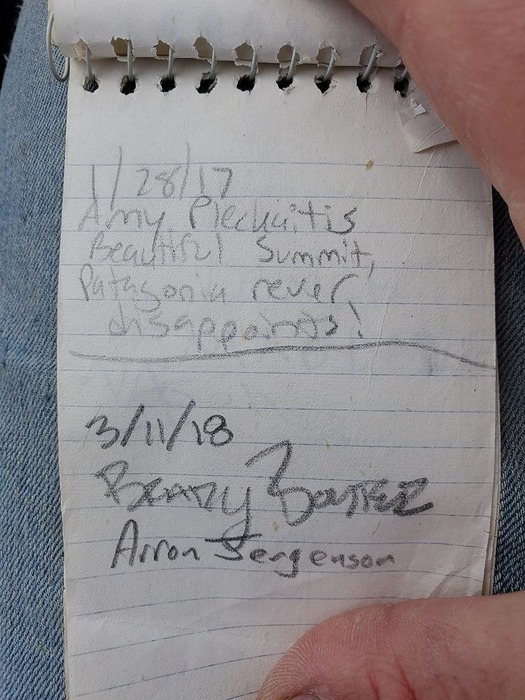 1/28/17
Amy
Beautiful Summit,
Patagonia never
disappoints!
3/11/18
Arron Jergenson